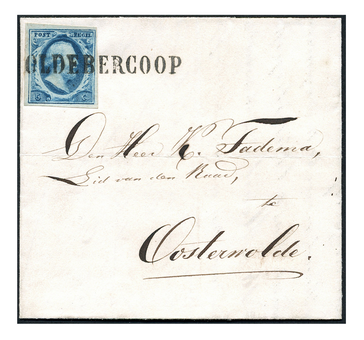 POST ZEGEL
OLDEBERCOOP
Den Heer K. Fadema,
Lid van den Raad,
te
Oosterwolde.